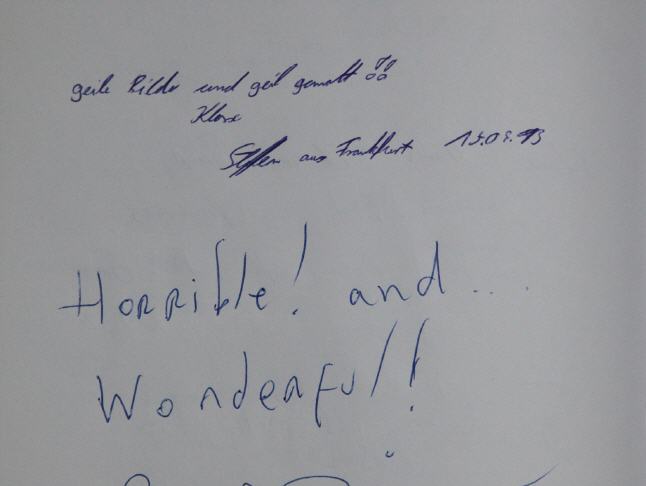 geile Bilder und geil gemalt !!
Klasse
Steffen aus Frankfurt
Horrible! and ...
Wonderful!